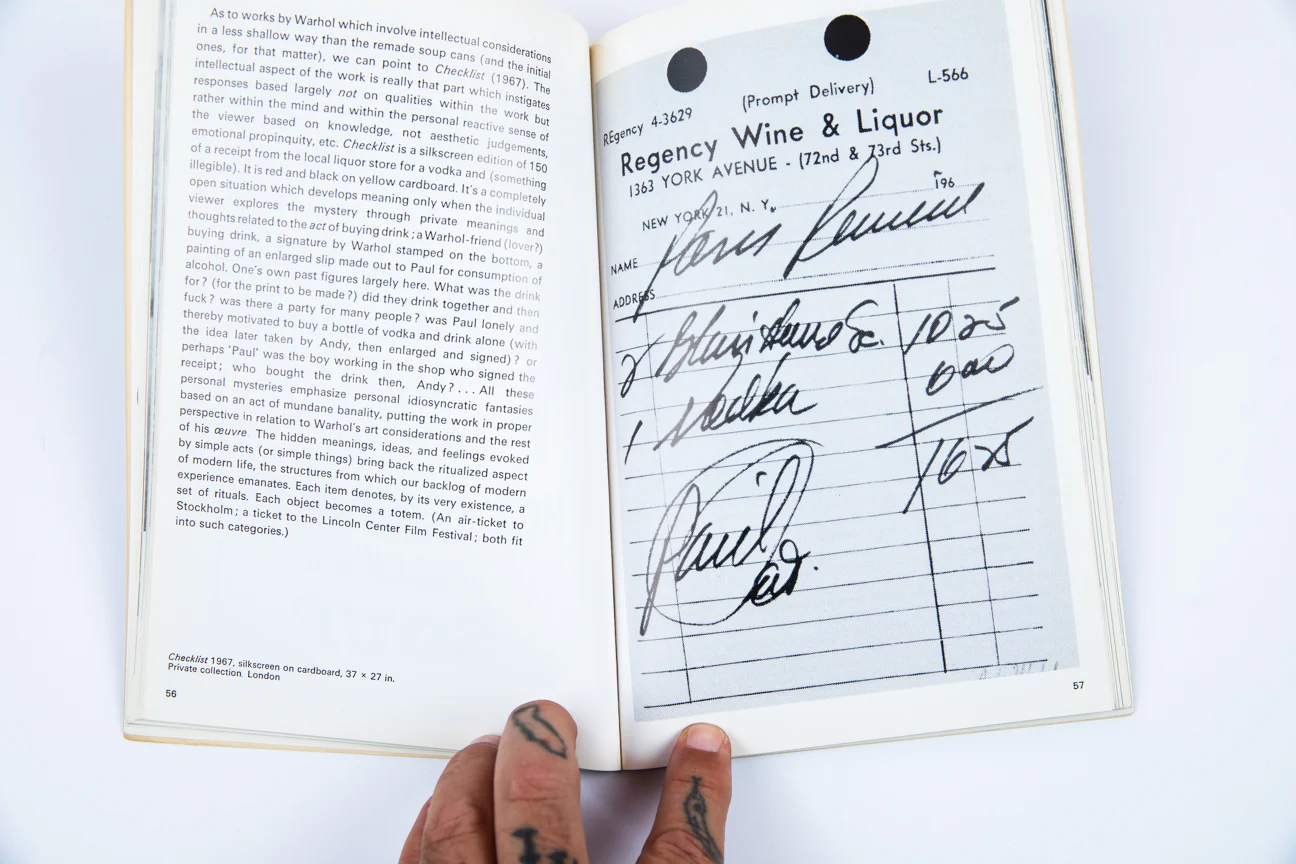 As to works by Warhol which involve intellectual considerations
in a less shallow way than the remade soup cans (and the initial
ones, for that matter), we can point to Checklist (1967). The
intellectual aspect of the work is really that part which instigates
responses based largely not on qualities within the work but
rather within the mind and within the personal reactive sense of
the viewer based on knowledge, not aesthetic judgements,
emotional propinquity, etc. Checklist is a silkscreen edition of 150
of a receipt from the local liquor store for a vodka and (something
illegible). It is red and black on yellow cardboard. It's a completely
open situation which develops meaning only when the individual
viewer explores the mystery through private meanings and
thoughts related to the act of buying drink; a Warhol-friend (lover?)
buying drink, a signature by Warhol stamped on the bottom, a
painting of an enlarged slip made out to Paul for consumption of
alcohol. One's own past figures largely here. What was the drink
for? (for the print to be made?) did they drink together and then
fuck? was there a party for many people? was Paul lonely and
thereby motivated to buy a bottle of vodka and drink alone (with
the idea later taken by Andy, then enlarged and signed)? or
perhaps 'Paul' was the boy working in the shop who signed the
receipt; who bought the drink then, Andy? . . . All these
personal mysteries emphasize personal idiosyncratic fantasies
based on an act of mundane banality, putting the work in proper
perspective in relation to Warhol's art considerations and the rest
of his œuvre. The hidden meanings, ideas, and feelings evoked
by simple acts (or simple things) bring back the ritualized aspect
of modern life, the structures from which our backlog of modern
experience emanates. Each item denotes, by its very existence, a
set of rituals. Each object becomes a totem. (An air-ticket to
Stockholm; a ticket to the Lincoln Center Film Festival; both fit
into such categories.)
Checklist 1967, silkscreen on cardboard, 37 × 27 in.
Private collection. London
56
REgency 4-3629 (Prompt Delivery) L-566
Regency Wine & Liquor
1363 YORK AVENUE - (72nd & 73rd Sts.)
NEW YORK 21, N. Y. 196
NAME Paris
ADDRESS
2 10 25
1 Vodka 6 00
16 25
Paul
57